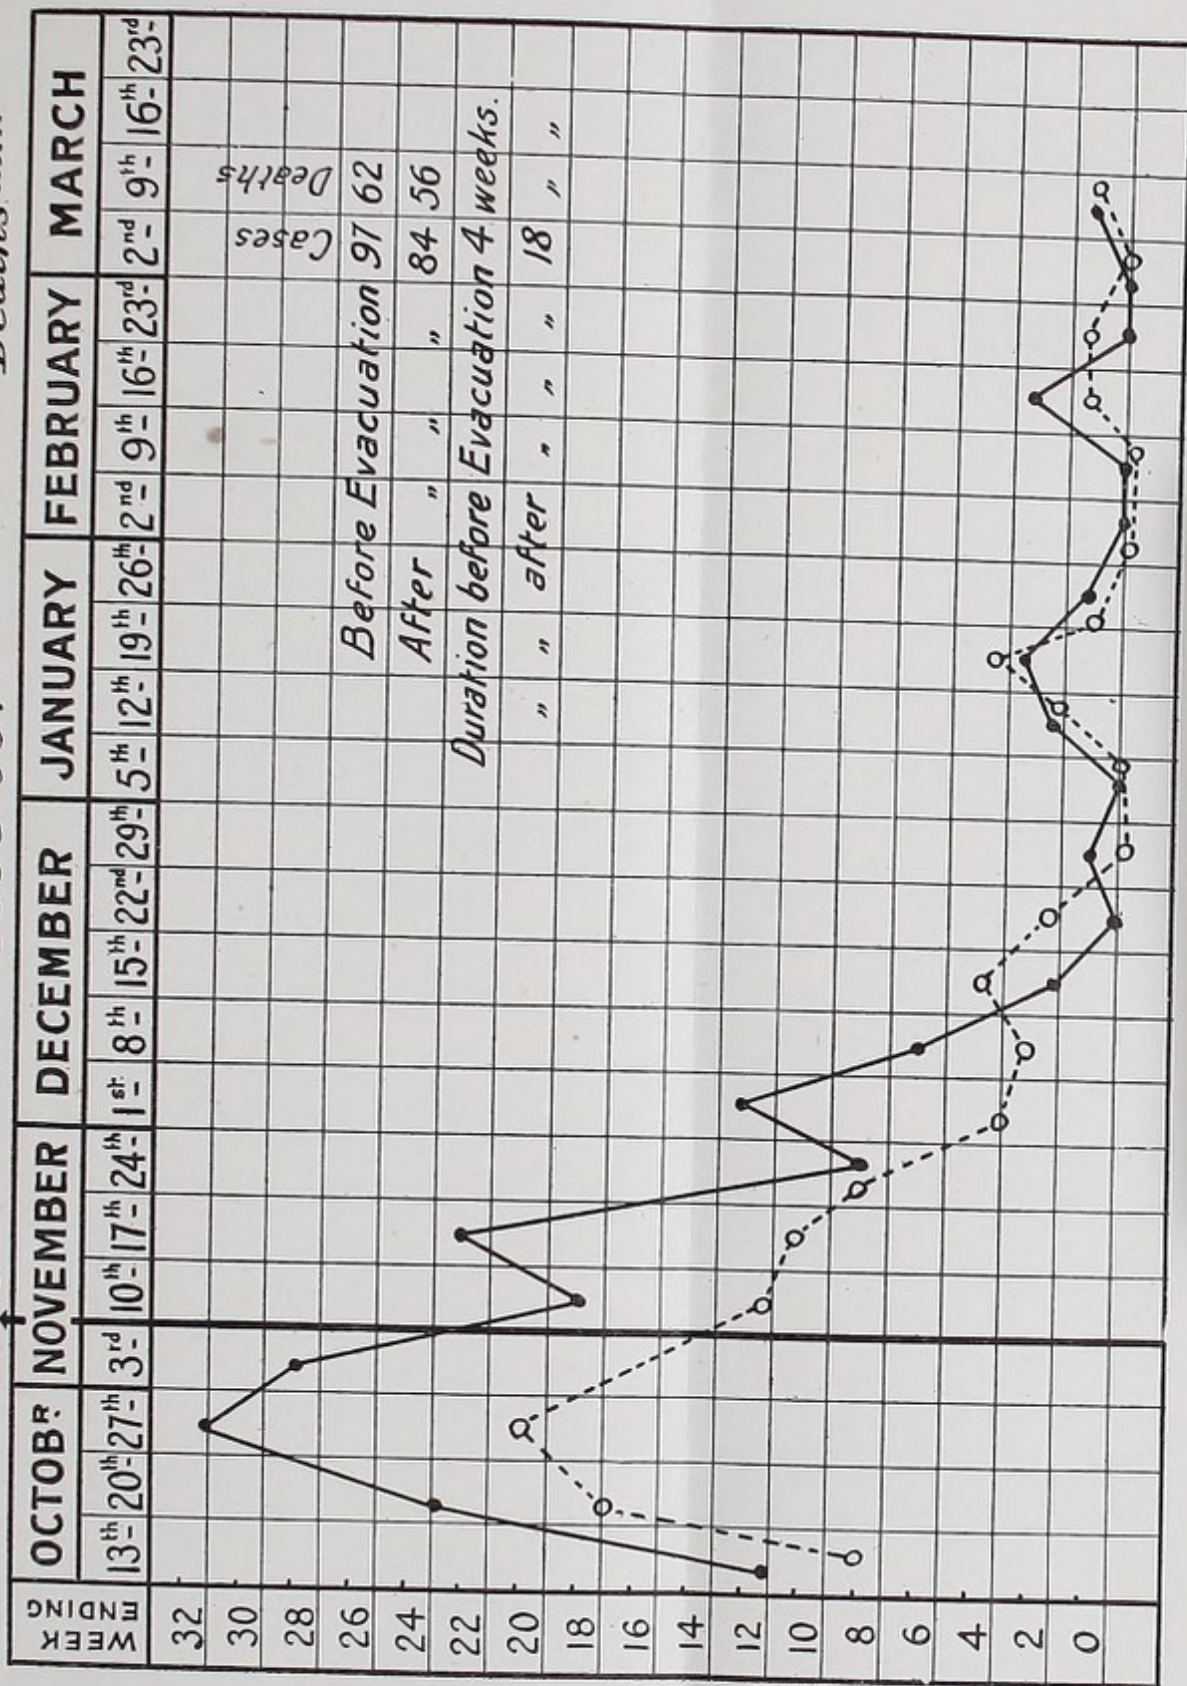 WEEK ENDING
OCTOBR. NOVEMBER DECEMBER JANUARY FEBRUARY MARCH
13th- 20th- 27th- 3rd- 10th- 17th- 24th- 1st- 8th- 15th- 22nd- 29th- 5th- 12th- 19th- 26th- 2nd- 9th- 16th- 23rd- 2nd- 9th- 16th- 23rd-
32
30
28
26
24
22
20
18
16
14
12
10
8
6
4
2
0
Cases Deaths
Before Evacuation 97 62
After „ „ „ 84 56
Duration before Evacuation 4 weeks.
„ „ after „ „ „ 18 „ „